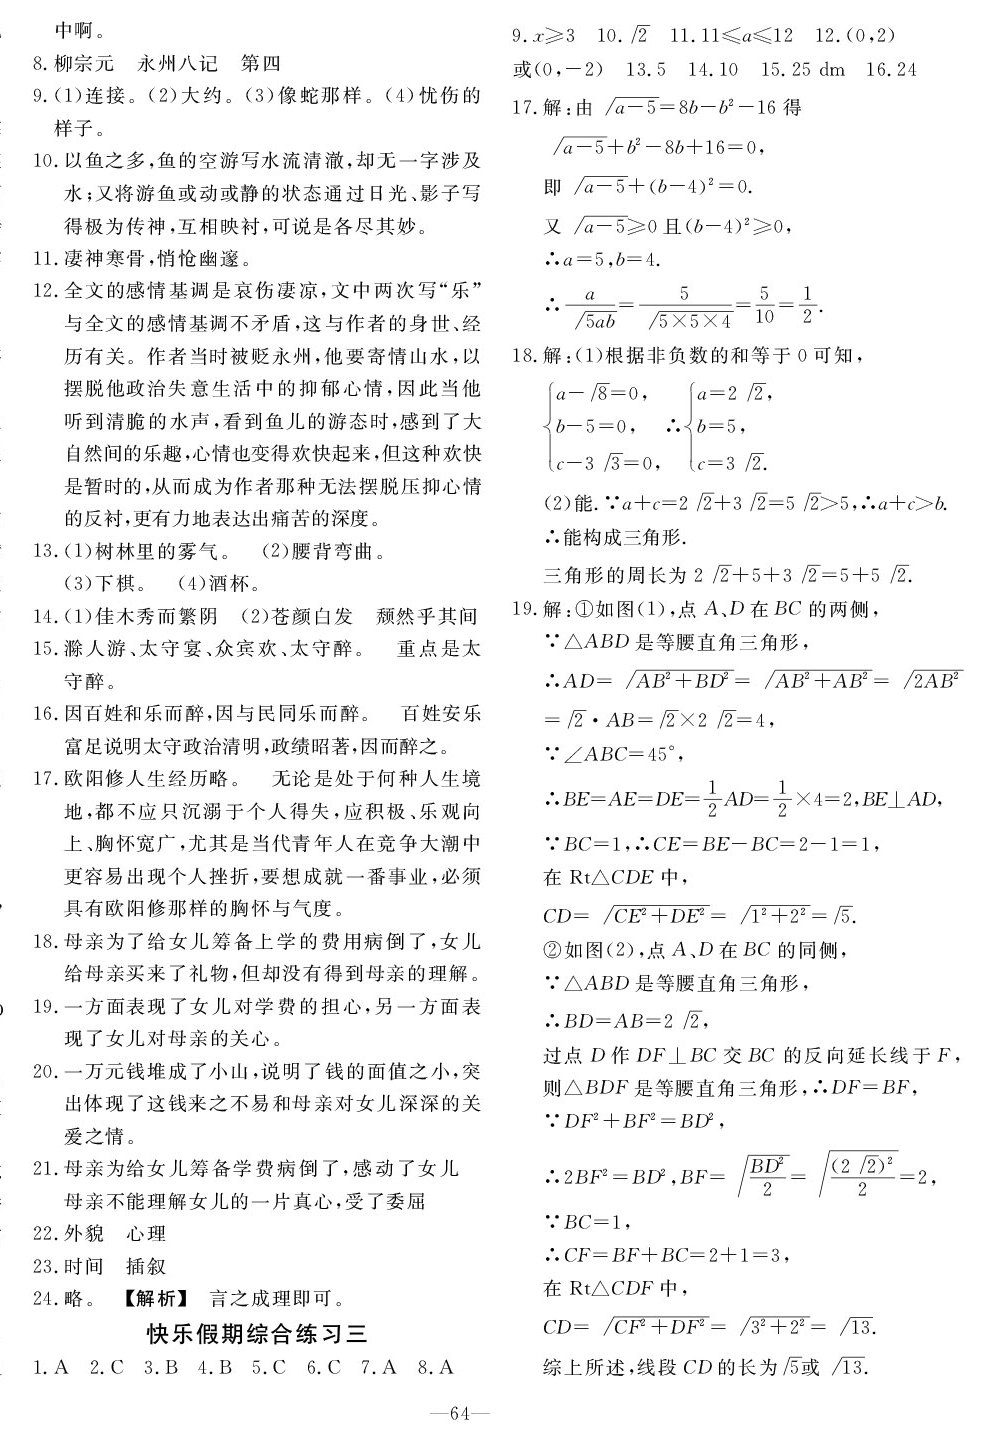 中啊。
8.柳宗元　永州八记　第四
9.(1)连接。(2)大约。(3)像蛇那样。(4)忧伤的
样子。
10.以鱼之多,鱼的空游写水流清澈,却无一字涉及
水;又将游鱼或动或静的状态通过日光、影子写
得极为传神,互相映衬,可说是各尽其妙。
11.凄神寒骨,悄怆幽邃。
12.全文的感情基调是哀伤凄凉,文中两次写“乐”
与全文的感情基调不矛盾,这与作者的身世、经
历有关。作者当时被贬永州,他要寄情山水,以
摆脱他政治失意生活中的抑郁心情,因此当他
听到清脆的水声,看到鱼儿的游态时,感到了大
自然间的乐趣,心情也变得欢快起来,但这种欢快
是暂时的,从而成为作者那种无法摆脱压抑心情
的反衬,更有力地表达出痛苦的深度。
13.(1)树林里的雾气。　(2)腰背弯曲。
(3)下棋。　(4)酒杯。
14.(1)佳木秀而繁阴　(2)苍颜白发　颓然乎其间
15.滁人游、太守宴、众宾欢、太守醉。　重点是太
守醉。
16.因百姓和乐而醉,因与民同乐而醉。　百姓安乐
富足说明太守政治清明,政绩昭著,因而醉之。
17.欧阳修人生经历略。　无论是处于何种人生境
地,都不应只沉溺于个人得失,应积极、乐观向
上、胸怀宽广,尤其是当代青年人在竞争大潮中
更容易出现个人挫折,要想成就一番事业,必须
具有欧阳修那样的胸怀与气度。
18.母亲为了给女儿筹备上学的费用病倒了,女儿
给母亲买来了礼物,但却没有得到母亲的理解。
19.一方面表现了女儿对学费的担心,另一方面表
现了女儿对母亲的关心。
20.一万元钱堆成了小山,说明了钱的面值之小,突
出体现了这钱来之不易和母亲对女儿深深的关
爱之情。
21.母亲为给女儿筹备学费病倒了,感动了女儿
母亲不能理解女儿的一片真心,受了委屈
22.外貌　心理
23.时间　插叙
24.略。　【解析】　言之成理即可。
快乐假期综合练习三
1.A　2.C　3.B　4.B　5.C　6.C　7.A　8.A
9.x≥3　10.√2　11.11≤a≤12　12.(0,2)
或(0,−2)　13.5　14.10　15.25 dm　16.24
17.解:由 √(a−5)=8b−b²−16 得
√(a−5)+b²−8b+16=0,
即 √(a−5)+(b−4)²=0.
又 √(a−5)≥0 且(b−4)²≥0,
∴a=5,b=4.
∴a/√(5ab)=5/√(5×5×4)=5/10=1/2.
18.解:(1)根据非负数的和等于 0 可知,
{a−√8=0,　{a=2√2,
b−5=0,　∴b=5,
c−3√3=0,　c=3√2.
(2)能.∵a+c=2√2+3√2=5√2>5,∴a+c>b.
∴能构成三角形.
三角形的周长为 2√2+5+3√2=5+5√2.
19.解:①如图(1),点 A、D 在 BC 的两侧,
∵△ABD 是等腰直角三角形,
∴AD=√(AB²+BD²)=√(AB²+AB²)=√(2AB²)
=√2·AB=√2×2√2=4,
∵∠ABC=45°,
∴BE=AE=DE=1/2AD=1/2×4=2,BE⊥AD,
∵BC=1,∴CE=BE−BC=2−1=1,
在 Rt△CDE 中,
CD=√(CE²+DE²)=√(1²+2²)=√5.
②如图(2),点 A、D 在 BC 的同侧,
∵△ABD 是等腰直角三角形,
∴BD=AB=2√2,
过点 D 作 DF⊥BC 交 BC 的反向延长线于 F,
则△BDF 是等腰直角三角形,∴DF=BF,
∵DF²+BF²=BD²,
∴2BF²=BD²,BF=√(BD²/2)=√((2√2)²/2)=2,
∵BC=1,
∴CF=BF+BC=2+1=3,
在 Rt△CDF 中,
CD=√(CF²+DF²)=√(3²+2²)=√13.
综上所述,线段 CD 的长为√5或√13.
—64—